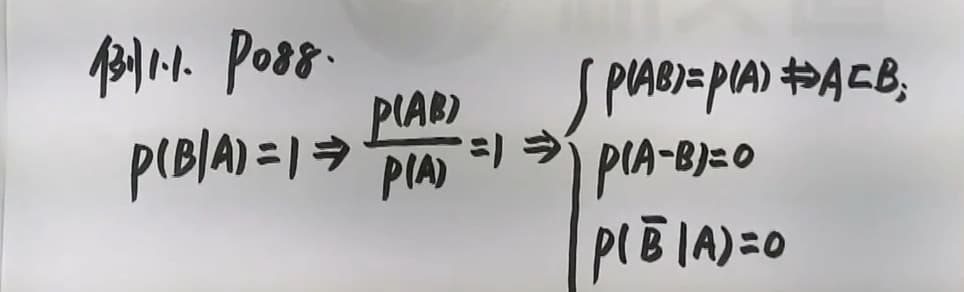 例1.1. P088.
P(B|A)=1⇒P(AB)/P(A)=1⇒{P(AB)=P(A)⇏A⊂B;
P(A-B)=0
P(B̅|A)=0